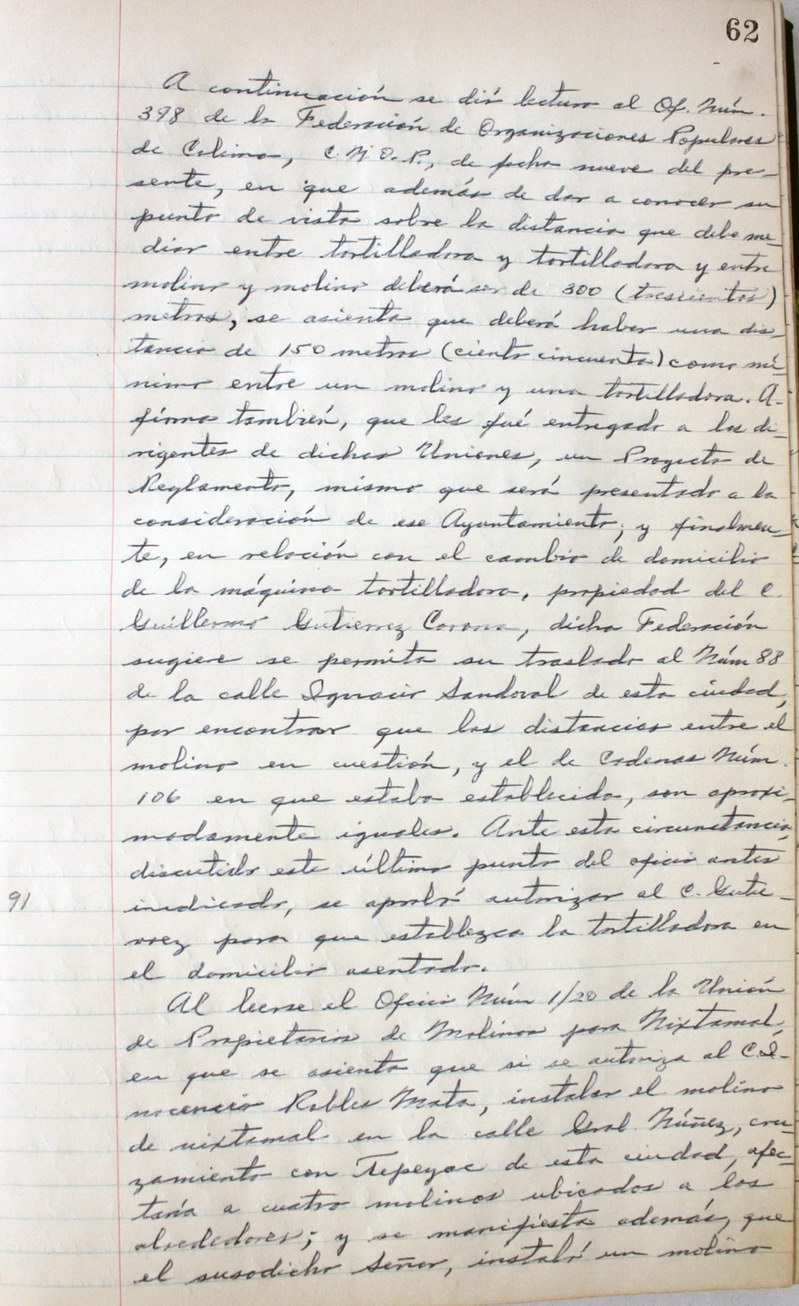 62
A continuación se dió lectura al Of. Núm.
398 de la Federación de Organizaciones Populares
de Colima, C.N.O.P., de fecha nueve del pre-
sente, en que además de dar a conocer su
punto de vista sobre la distancia que debe me-
diar entre tortilladora y tortilladora y entre
molino y molino deberá ser de 300 (trescientos)
metros, se asienta que deberá haber una dis-
tancia de 150 metros (ciento cincuenta) como mí-
nimo entre un molino y una tortilladora. A-
firma también, que les fué entregado a los di-
rigentes de dichas Uniones, un Proyecto de
Reglamento, mismo que será presentado a la
consideración de ese Ayuntamiento; y finalmen-
te, en relación con el cambio de domicilio
de la máquina tortilladora, propiedad del C.
Guillermo Gutierrez Corona, dicha Federación
sugiere se permita su traslado al Núm 88
de la calle Ignacio Sandoval de esta ciudad,
por encontrar que las distancias entre el
molino en cuestión, y el de Cadenas Núm.
106 en que estaba establecida, son aproxi-
madamente iguales. Ante esta circunstancia,
discutido este último punto del oficio antes
91 indicado, se aprobó autorizar al C. Gutie-
rrez para que establezca la tortilladora en
el domicilio asentado.
Al leerse el Oficio Núm 1/20 de la Unión
de Propietarios de Molinos para Nixtamal,
en que se asienta que si se autoriza al C. I-
nocencio Robles Mata, instalar el molino
de nixtamal en la calle Gral. Núñez, cru-
zamiento con Tepeyac de esta ciudad, afec-
taría a cuatro molinos ubicados a los
alrededores; y se manifiesta además, que
el susodicho Señor, instaló un molino